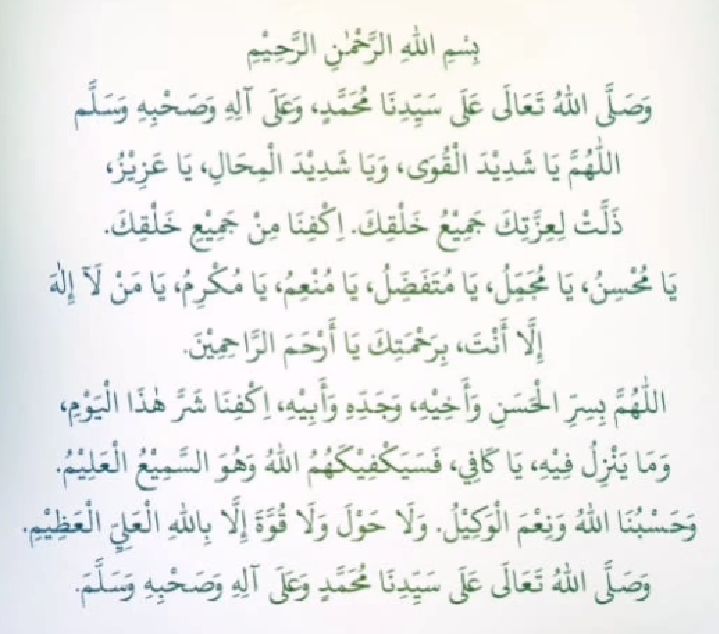 بِسْمِ اللهِ الرَّحْمٰنِ الرَّحِيْمِ
وَصَلَّى اللهُ تَعَالَى عَلَى سَيِّدِنَا مُحَمَّدٍ، وَعَلَى آلِهِ وَصَحْبِهِ وَسَلَّم
اللّٰهُمَّ يَا شَدِيْدَ الْقُوَى، وَيَا شَدِيْدَ الْمِحَالِ، يَا عَزِيْزُ،
ذَلَّتْ لِعِزَّتِكَ جَمِيْعُ خَلْقِكَ. اِكْفِنَا مِنْ جَمِيْعِ خَلْقِكَ.
يَا مُحْسِنُ، يَا مُجَمِّلُ، يَا مُتَفَضِّلُ، يَا مُنْعِمُ، يَا مُكْرِمُ، يَا مَنْ لَآ إِلٰهَ
إِلَّا أَنْتَ، بِرَحْمَتِكَ يَا أَرْحَمَ الرَّاحِمِيْنَ.
اللّٰهُمَّ بِسِرِّ الْحَسَنِ وَأَخِيْهِ، وَجَدِّهِ وَأَبِيْهِ، اِكْفِنَا شَرَّ هٰذَا الْيَوْمِ،
وَمَا يَنْزِلُ فِيْهِ، يَا كَافِي، فَسَيَكْفِيْكَهُمُ اللهُ وَهُوَ السَّمِيْعُ الْعَلِيْمُ.
وَحَسْبُنَا اللهُ وَنِعْمَ الْوَكِيْلُ. وَلَا حَوْلَ وَلَا قُوَّةَ إِلَّا بِاللهِ الْعَلِيِّ الْعَظِيْمِ.
وَصَلَّى اللهُ تَعَالَى عَلَى سَيِّدِنَا مُحَمَّدٍ وَعَلَى آلِهِ وَصَحْبِهِ وَسَلَّمَ.